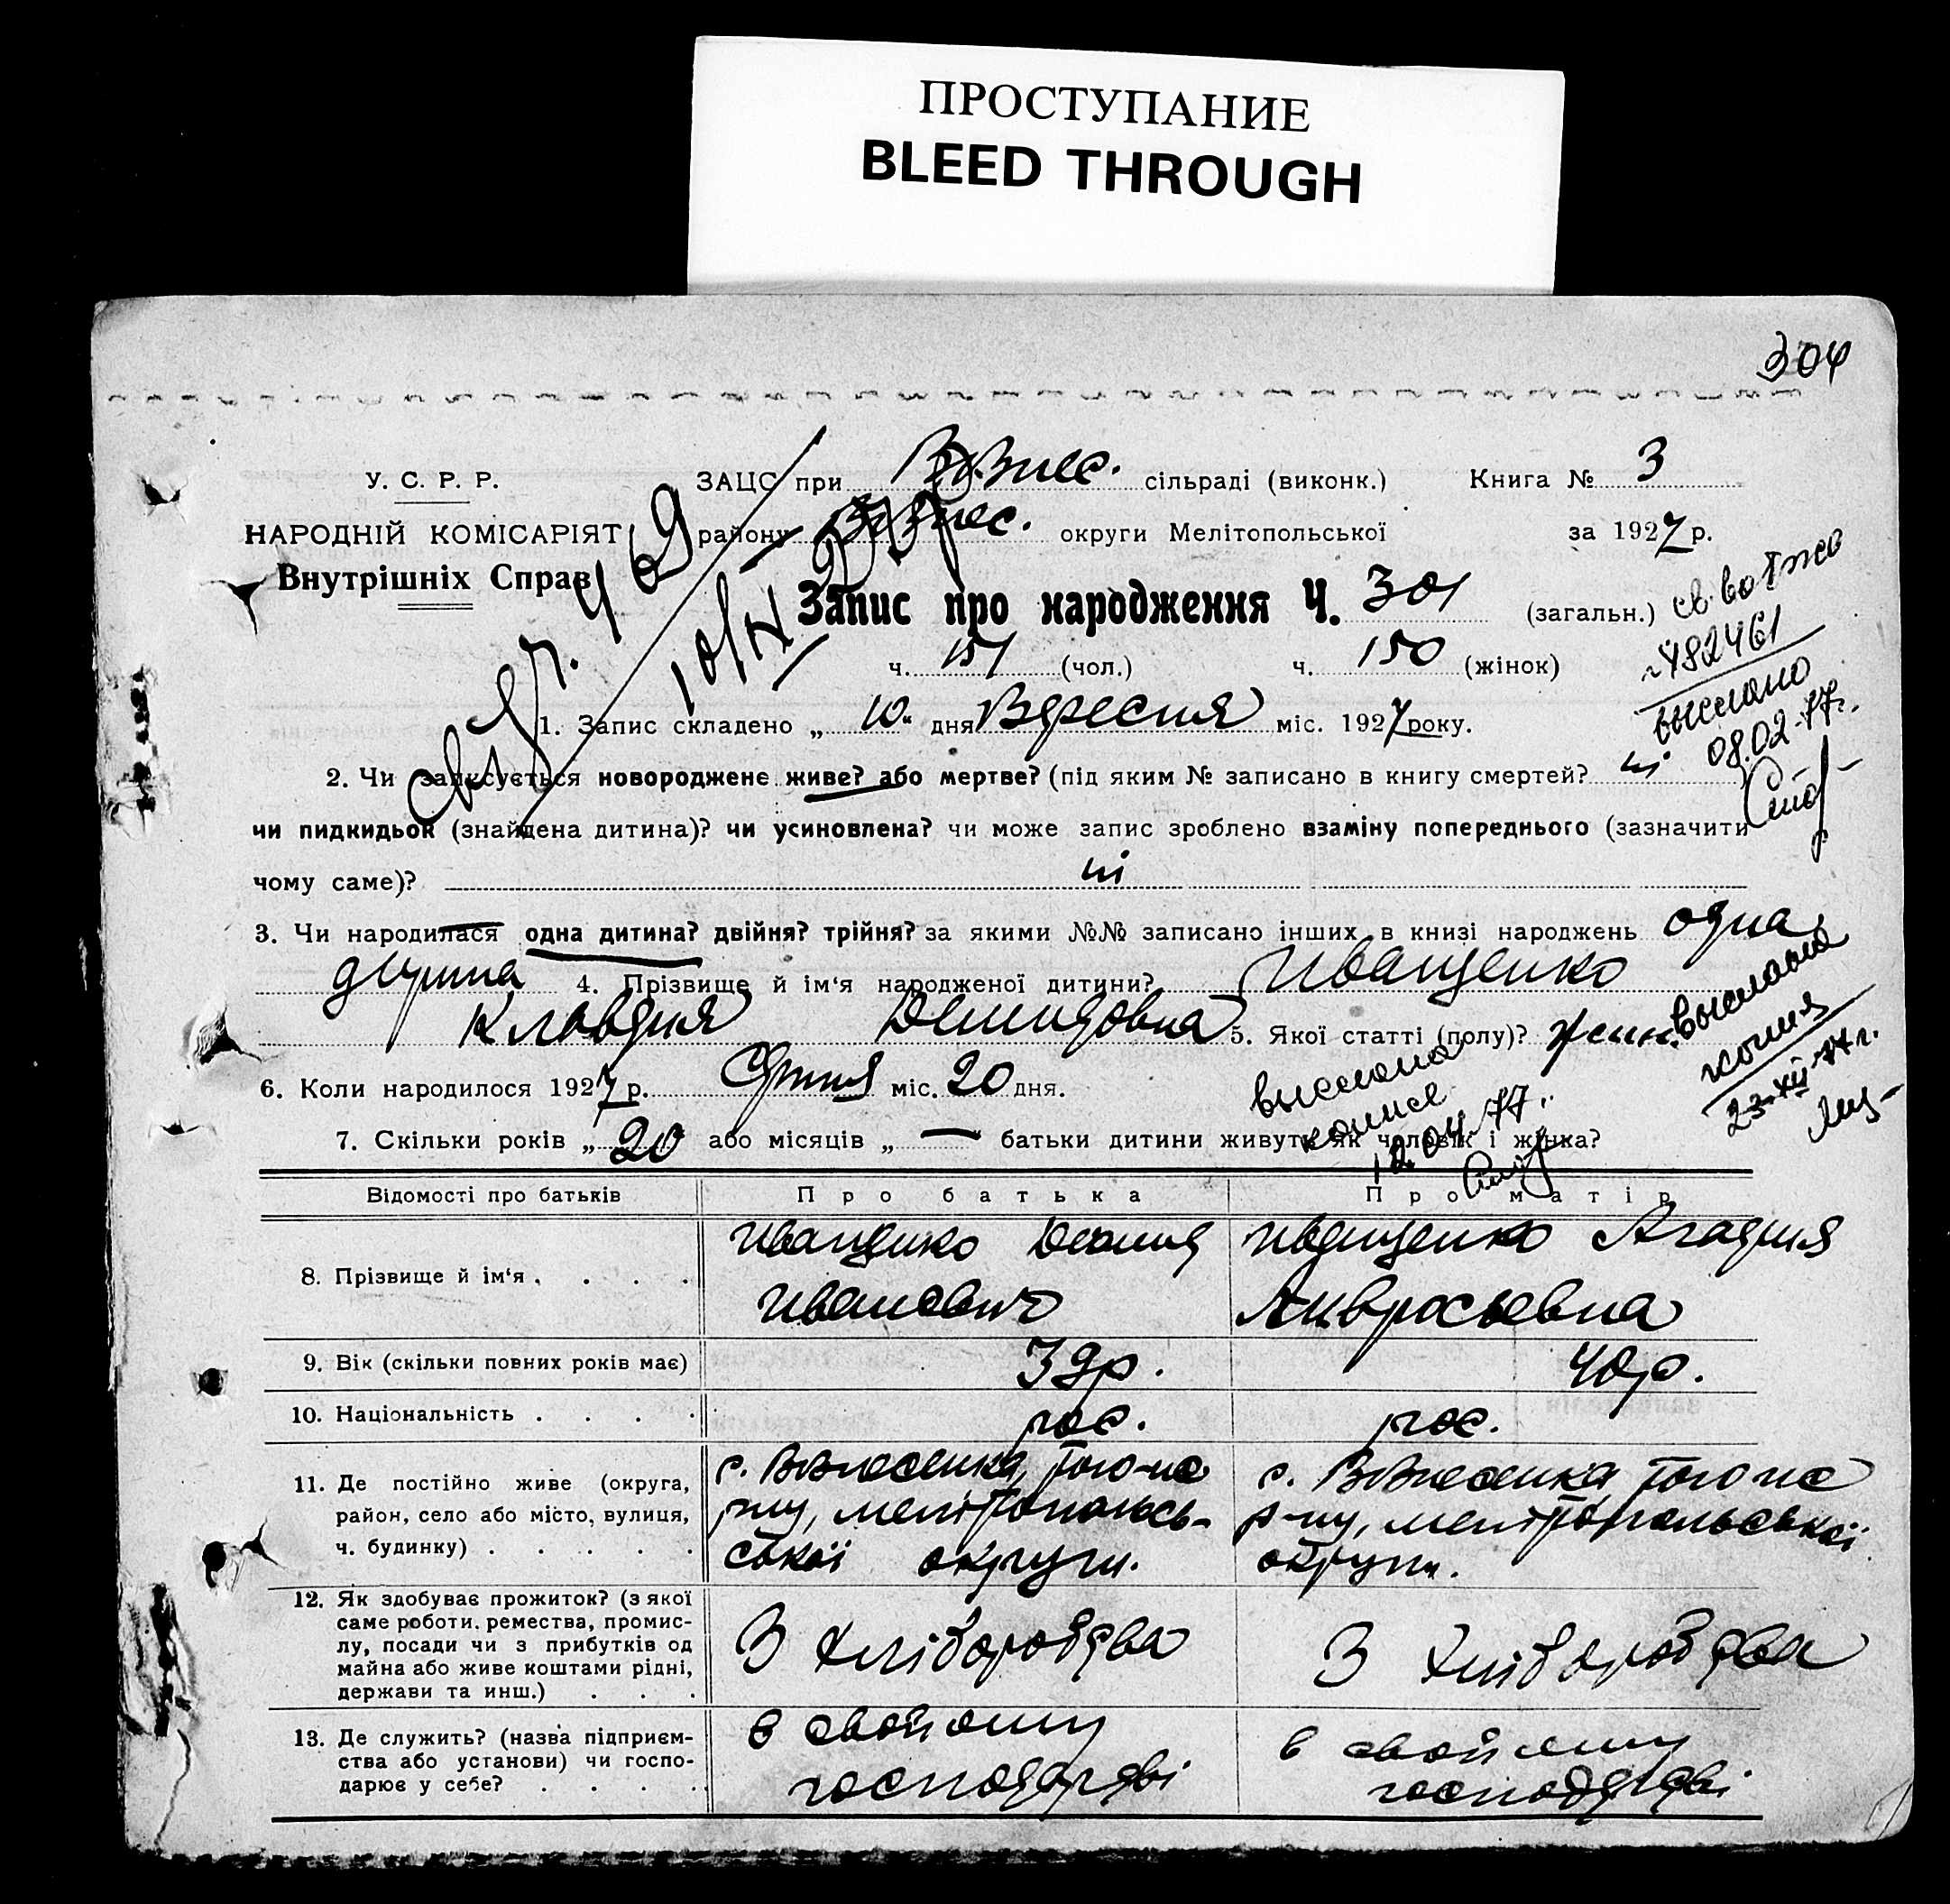 ПРОСТУПАНИЕ
BLEED THROUGH
304
У. С. Р. Р.
НАРОДНІЙ КОМІСАРІЯТ
Внутрішніх Справ
ЗАЦС при Вознес. сільраді (виконк.) Книга № 3
району Вознес. округи Мелітопольської за 1927 р.
Запис про народження Ч. 301 (загальн.)
ч. 151 (чол.) ч. 150 (жінок)
№ 482461
выслано
08.02.77г.
1. Запис складено „ 10 “ дня Вересня міс. 1927 року.
2. Чи записується новороджене живе? або мертве? (під яким № записано в книгу смертей? ні
чи пидкидьок (знайдена дитина)? чи усиновлена? чи може запис зроблено взаміну попереднього (зазначити
чому саме)? ні
3. Чи народилася одна дитина? двійня? трійня? за якими №№ записано інших в книзі народжень одна
дитина 4. Прізвище й ім‘я народженої дитини? Иващенко
Клавдия Демидовна 5. Якої статті (полу)? жин.
выслана
копия
23-XII-77г.
6. Коли народилося 1927 р. Серпня міс. 20 дня.
выслана
копие
12.04.77.
7. Скільки років „ 20 “ або місяців „ — “ батьки дитини живуть як чоловік і жінка?
Відомості про батьків Про батька Про матір
8. Прізвище й ім‘я . . . . Иващенко Демид Иващенко Агафия
Иванович Амвросьевна
9. Вік (скільки повних років має) 39р. 40р.
10. Національність . . . . рос. рос.
11. Де постійно живе (округа, с. Вознесенка, того-ж с. Вознесенка того ж
район, село або місто, вулиця, р-ну, мелітопольсь- р-ну, мелітопольської
ч. будинку) . . . . . ської округи. округи.
12. Як здобуває прожиток? (з якої
саме роботи, ремества, промис-
лу, посади чи з прибутків од З хліборобства З хліборобства
майна або живе коштами рідні,
держави та инш.) . . .
13. Де служить? (назва підприєм- в свойому в свойому
ства або установи) чи госпо- господарстві господарстві
дарює у себе? . . . .